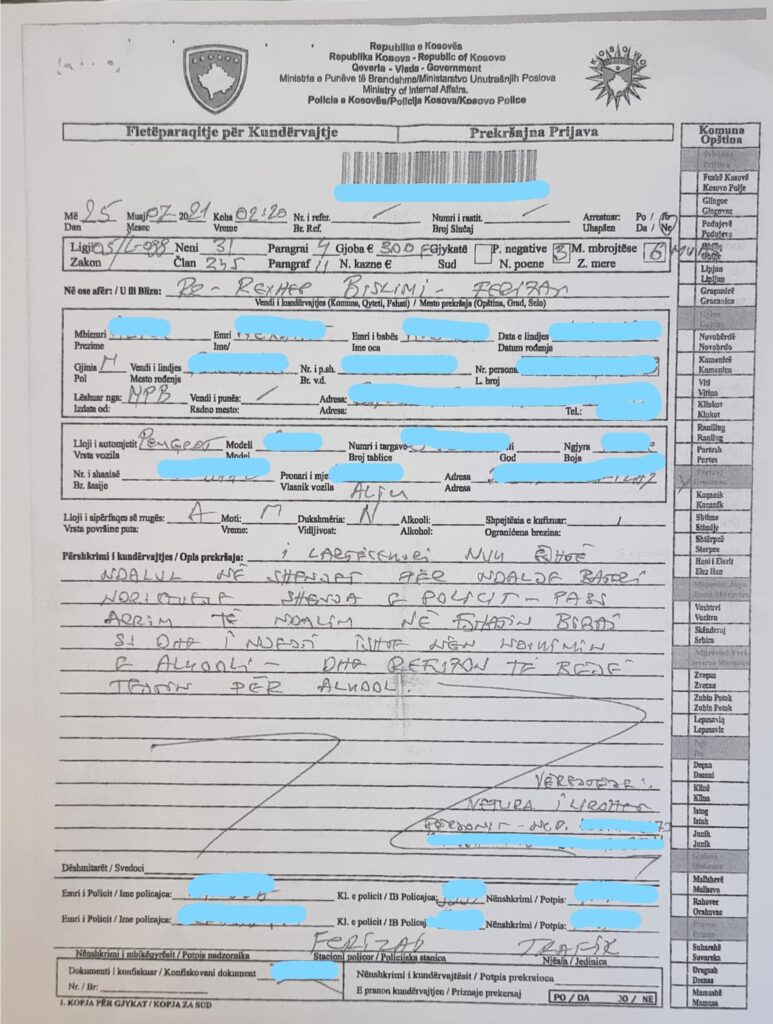 Republika e Kosovës
Republika Kosova - Republic of Kosovo
Qeveria - Vlada - Government
Ministria e Punëve të Brendshme/Ministarstvo Unutrašnjih Poslova
Ministry of Internal Affairs.
Policia e Kosovës/Policija Kosova/Kosovo Police
Fletëparaqitje për Kundërvajtje Prekršajna Prijava
Më 25 Muaj 07 2021 Koha 02:20 Nr. i refer. / Numri i rastit. / Arrestuar: Po / Jo
Dan Mesec Vreme Br. Ref. Broj Slučaj Uhapšen Da / Ne
Ligji 05/L-088 Neni 31 Paragrafi 4 Gjoba € 300 € Gjykatë P. negative 3 M. mbrojtëse 6 MUAJ
Zakon Član 245 Paragraf 11 N. kazne € Sud N. poene Z. mere
Në ose afër: / U ili Blizu: RR - REXHEP BISLIMI - FERIZAJ
Vendi i kundërvajtjes (Komuna, Qyteti, Fshati) / Mesto prekršaja (Opština, Grad, Selo)
Mbiemri Emri Emri i babës Data e lindjes
Prezime Ime/ Ime oca Datum rođenja
Gjinia M Vendi i lindjes Nr. i p.sh. Nr. persona
Pol Mesto rođenja Br. v.d. L. broj
Lëshuar nga: MPB Vendi i punës: / Adresa:
Izdata od: Radno mesto: Adresa: Tel.:
Lloji i automjetit PEUGEOT Modeli Numri i targave Ngjyra
Vrsta vozila Model Broj tablice God Boja
Nr. i shasisë Pronari i mje Adresa
Br. šasije Vlasnik vozila Adresa
Lloji i sipërfaqes së rrugës: A Moti: M Dukshmëria: N Alkooli: Shpejtësia e kufizuar: /
Vrsta površine puta: Vreme: Vidljivost: Alkohol: Ograničena brezina:
Përshkrimi i kundërvajtjes / Opis prekršaja: I LARTËCEKURI NUK ËSHTË
NDALUR NË SHENJËN PËR NDALJE
SHENJA E POLICIT - PASI
ARRIM TË NDALIM NË FSHATIN BIBAJ
SI DHE I NJEJTI ISHTE NËN NDIKIMIN
E ALKOOLI - DHE REFUZON TË BËJË
TESTIN PËR ALKOOL.
VËREJTJE:
VETURA I LIROHET
PERSONIT
Dëshmitarët / Svedoci
Emri i Policit / Ime policajca: Kl. e policit / IB Policajca Nënshkrimi / Potpis:
Emri i Policit / Ime policajca: Kl. e policit / IB Policaj Nënshkrimi / Potpis:
FERIZAJ TRAFIK
Nënshkrimi i mbikëqyrësit / Potpis nadzornika Stacioni policor / Policijska stanica Njësia / Jedinica
Dokumenti i konfiskuar / Konfiskovani dokument
Nr. / Br:
Nënshkrimi i kundërvajtësit / Potpis prekrsioca
E pranon kundërvajtjen / Priznaje prekersaj PO / DA JO / NE
1. KOPJA PËR GJYKAT / KOPJA ZA SUD
Komuna
Opština
Fushë Kosovë
Kosovo Polje
Gllogoc
Glogovac
Podujevë
Podujevo
Obiliq
Obilić
Lipjan
Lipljan
Graçanicë
Gracanica
Novobërdë
Novobrdo
Kamenicë
Kamenica
Viti
Vitina
Kllokot
Klokot
Ranillug
Ranilug
Partesh
Partes
Kaçanik
Kacanik
Shtime
Štimlje
Shtërpcë
Sterpce
Hani i Elezit
Elez Han
Vushtrri
Vucitrn
Skënderaj
Srbica
Zveçan
Zvecan
Zubin Potok
Zubin Potok
Leposaviq
Leposavic
Deçan
Decani
Klinë
Klina
Istog
Istok
Junik
Junik
Mallshevë
Malisevo
Rahovec
Orahovac
Suharekë
Suvareka
Dragash
Mamushë
Mamusa